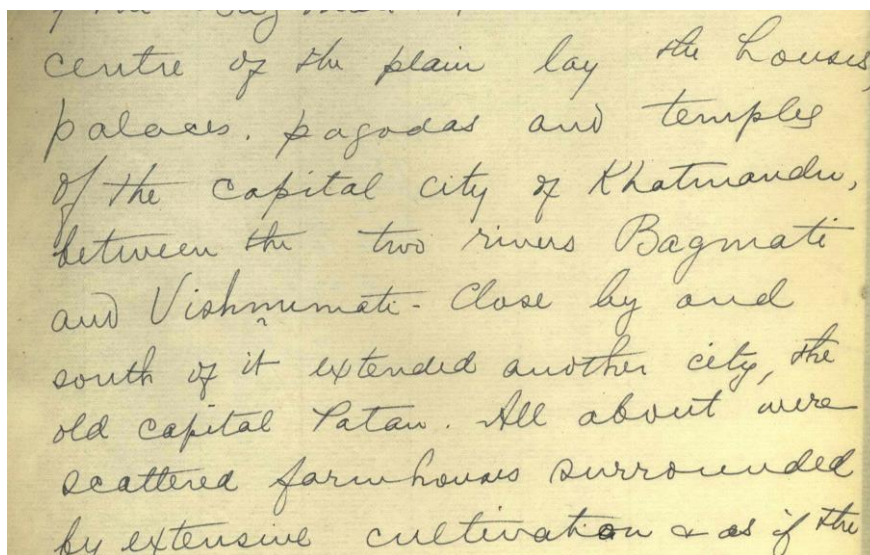 centre of the plain lay the houses,
palaces. pagodas and temples
of the capital city of Khatmandu,
between the two rivers Bagmati
and Vishnumati - Close by and
south of it extended another city, the
old capital Patan. All about were
scattered farmhouses surrounded
by extensive cultivation & as if the